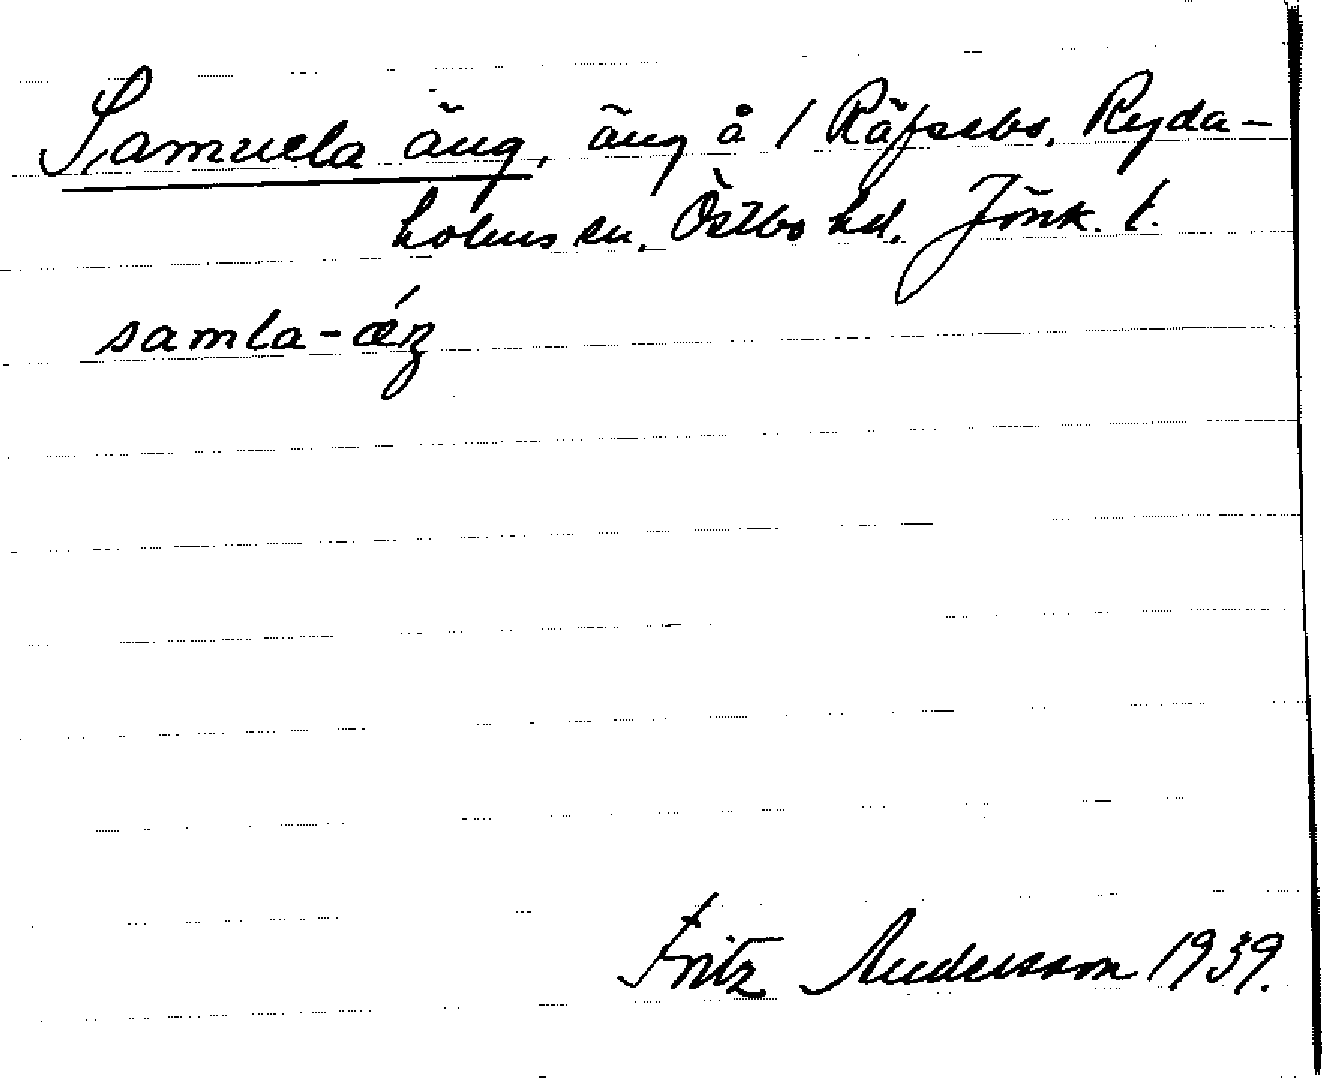 Samuela äng, äng å 1 Räfsebo, Ryda-
holms sn. Östbo hd. Jönk. l.
samla-ǽŋ
Fritz Andersson 1939.